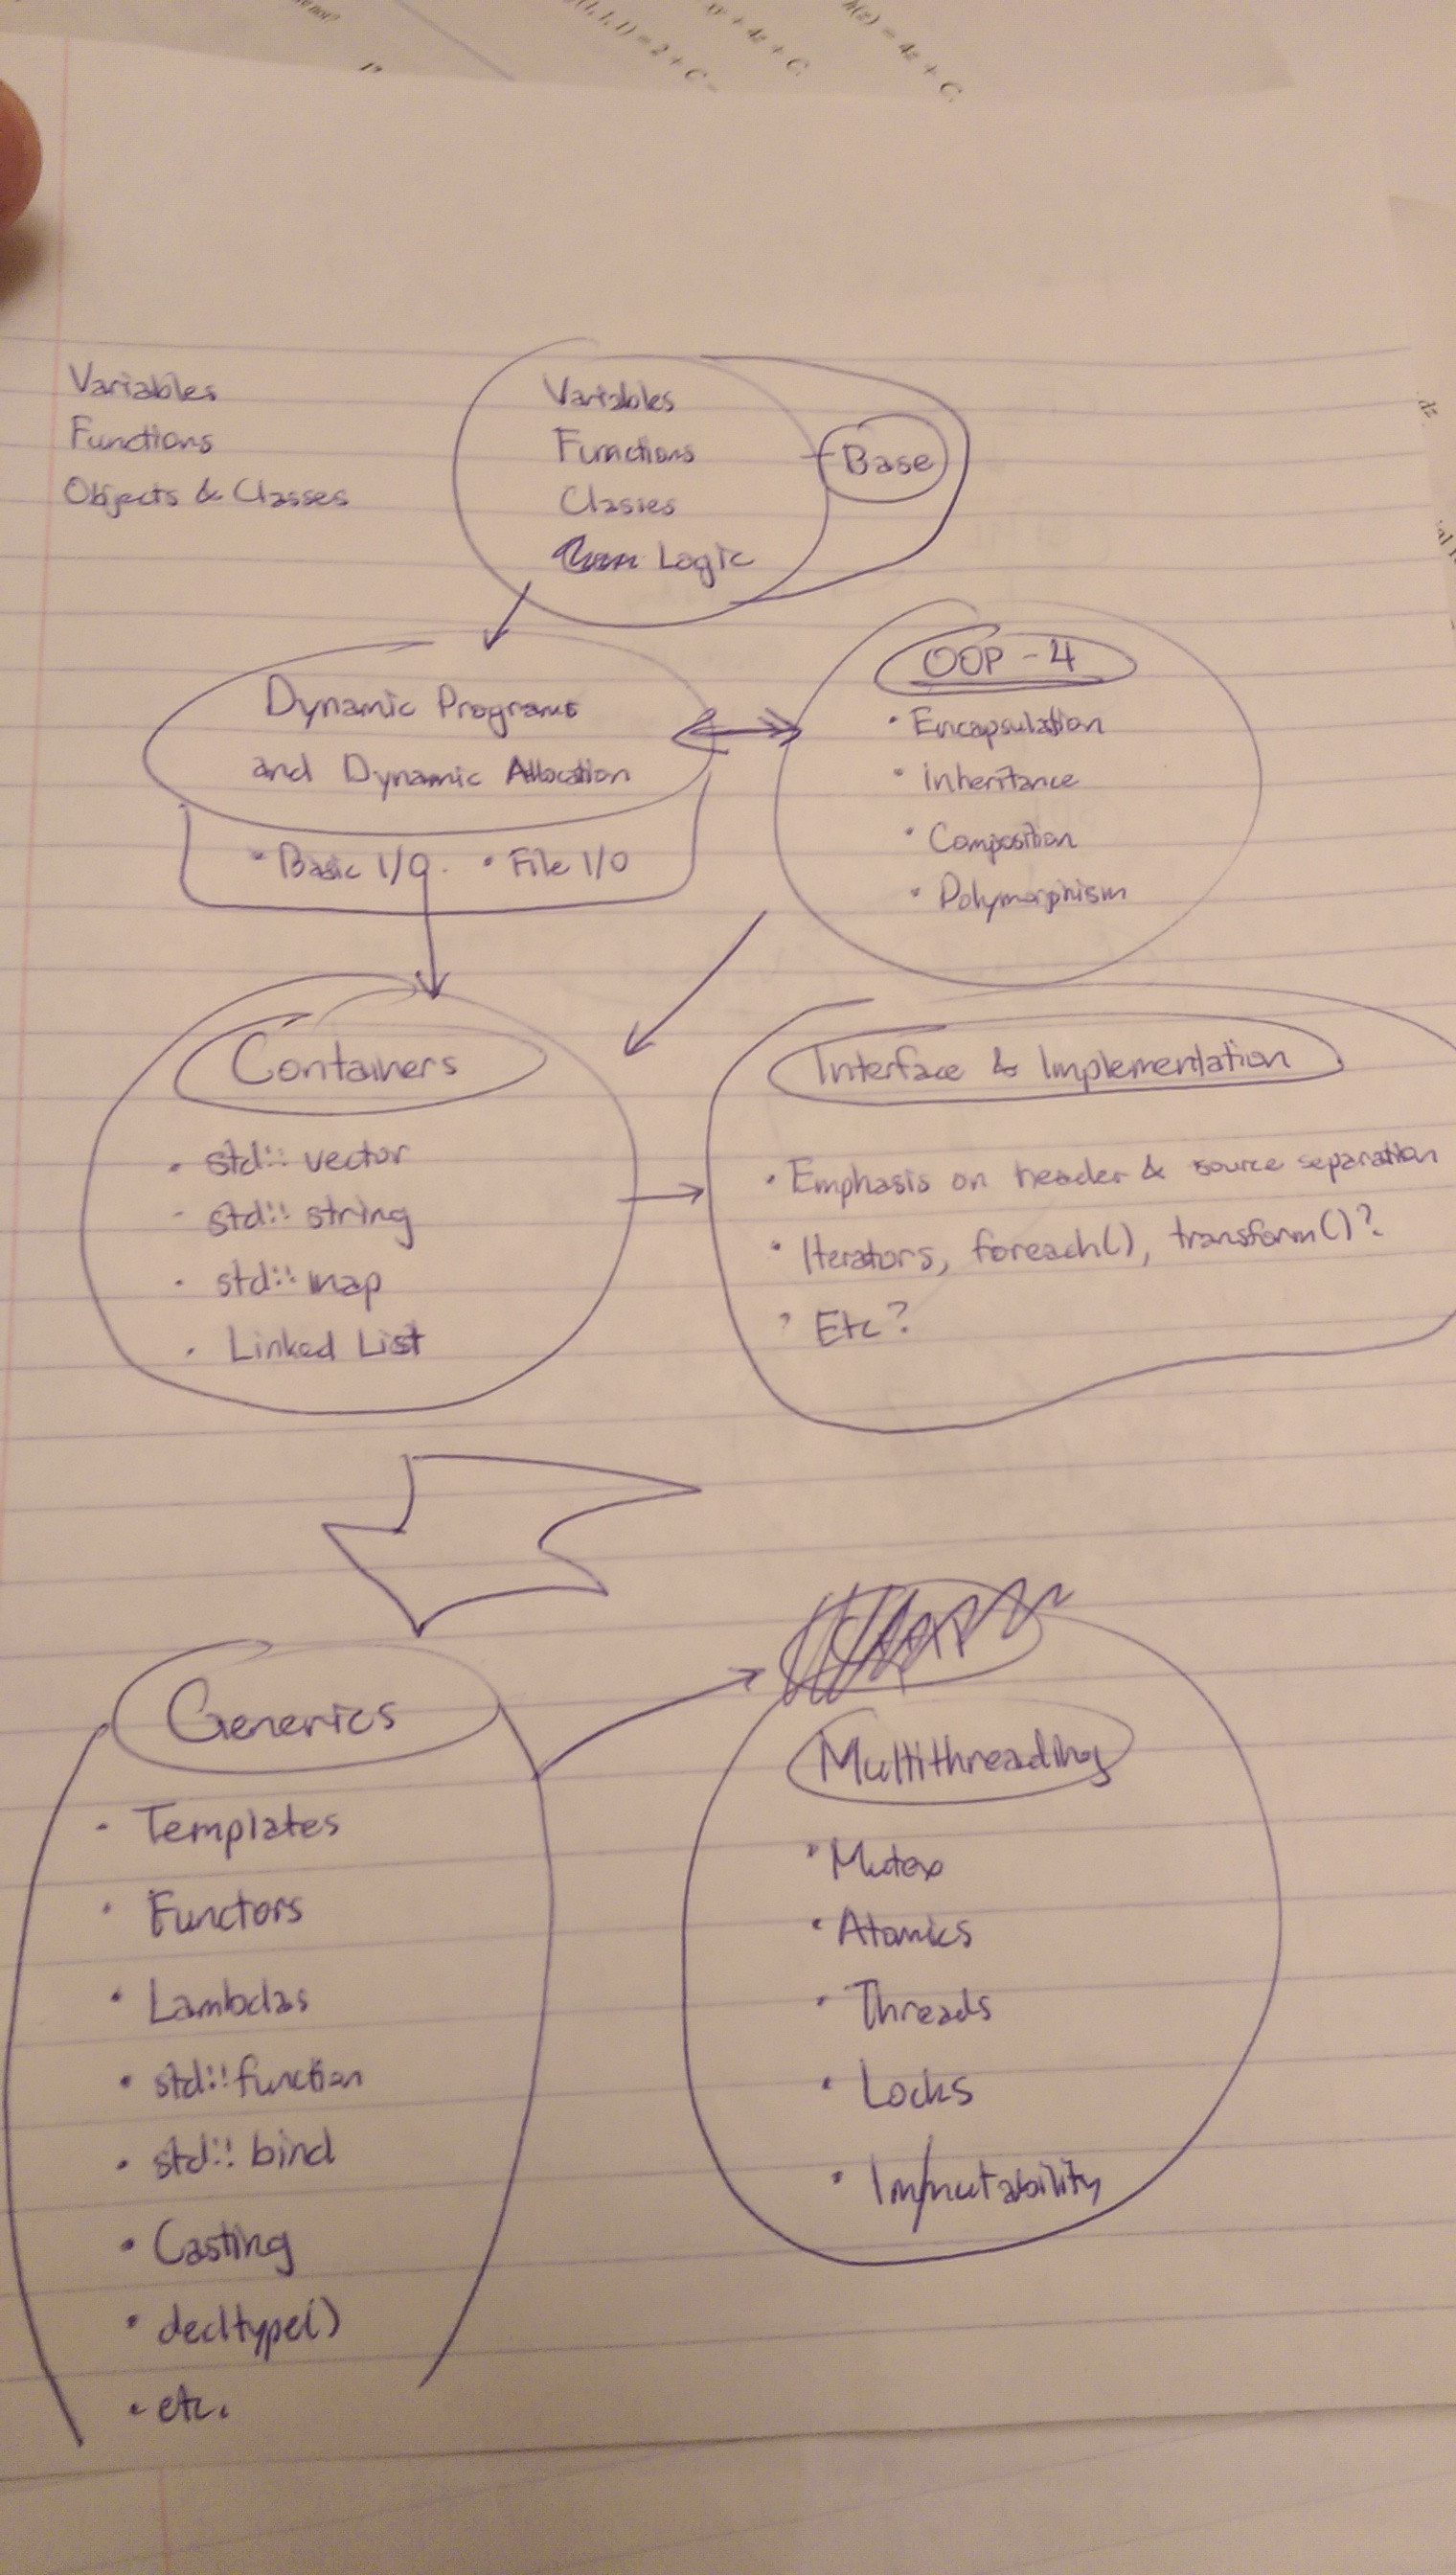 (1,1,1) = 2 + C
+ 4z + C
h(z) = 4z + C
Variables
Functions
Objects & Classes
Variables
Functions
Classes
Logic
Base
Dynamic Programs
and Dynamic Allocation
• Basic I/O • File I/O
OOP - 4
• Encapsulation
• Inheritance
• Composition
• Polymorphism
Containers
• std::vector
- std::string
• std::map
• Linked List
Interface & Implementation
• Emphasis on header & source separation
• Iterators, foreach(), transform()?
? Etc?
Generics
• Templates
• Functors
• Lambdas
• std::function
• std::bind
• Casting
• decltype()
• etc.
Multithreading
• Mutex
• Atomics
• Threads
• Locks
• Im/mutability